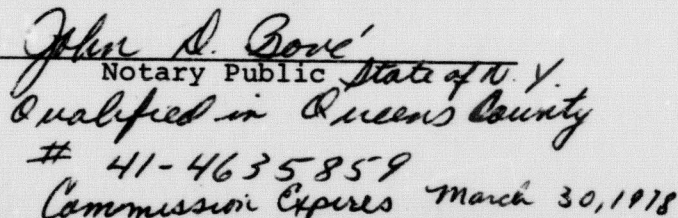 John D. Bové
Notary Public State of N.Y.
Qualified in Queens County
# 41-4635859
Commission Expires March 30, 1978